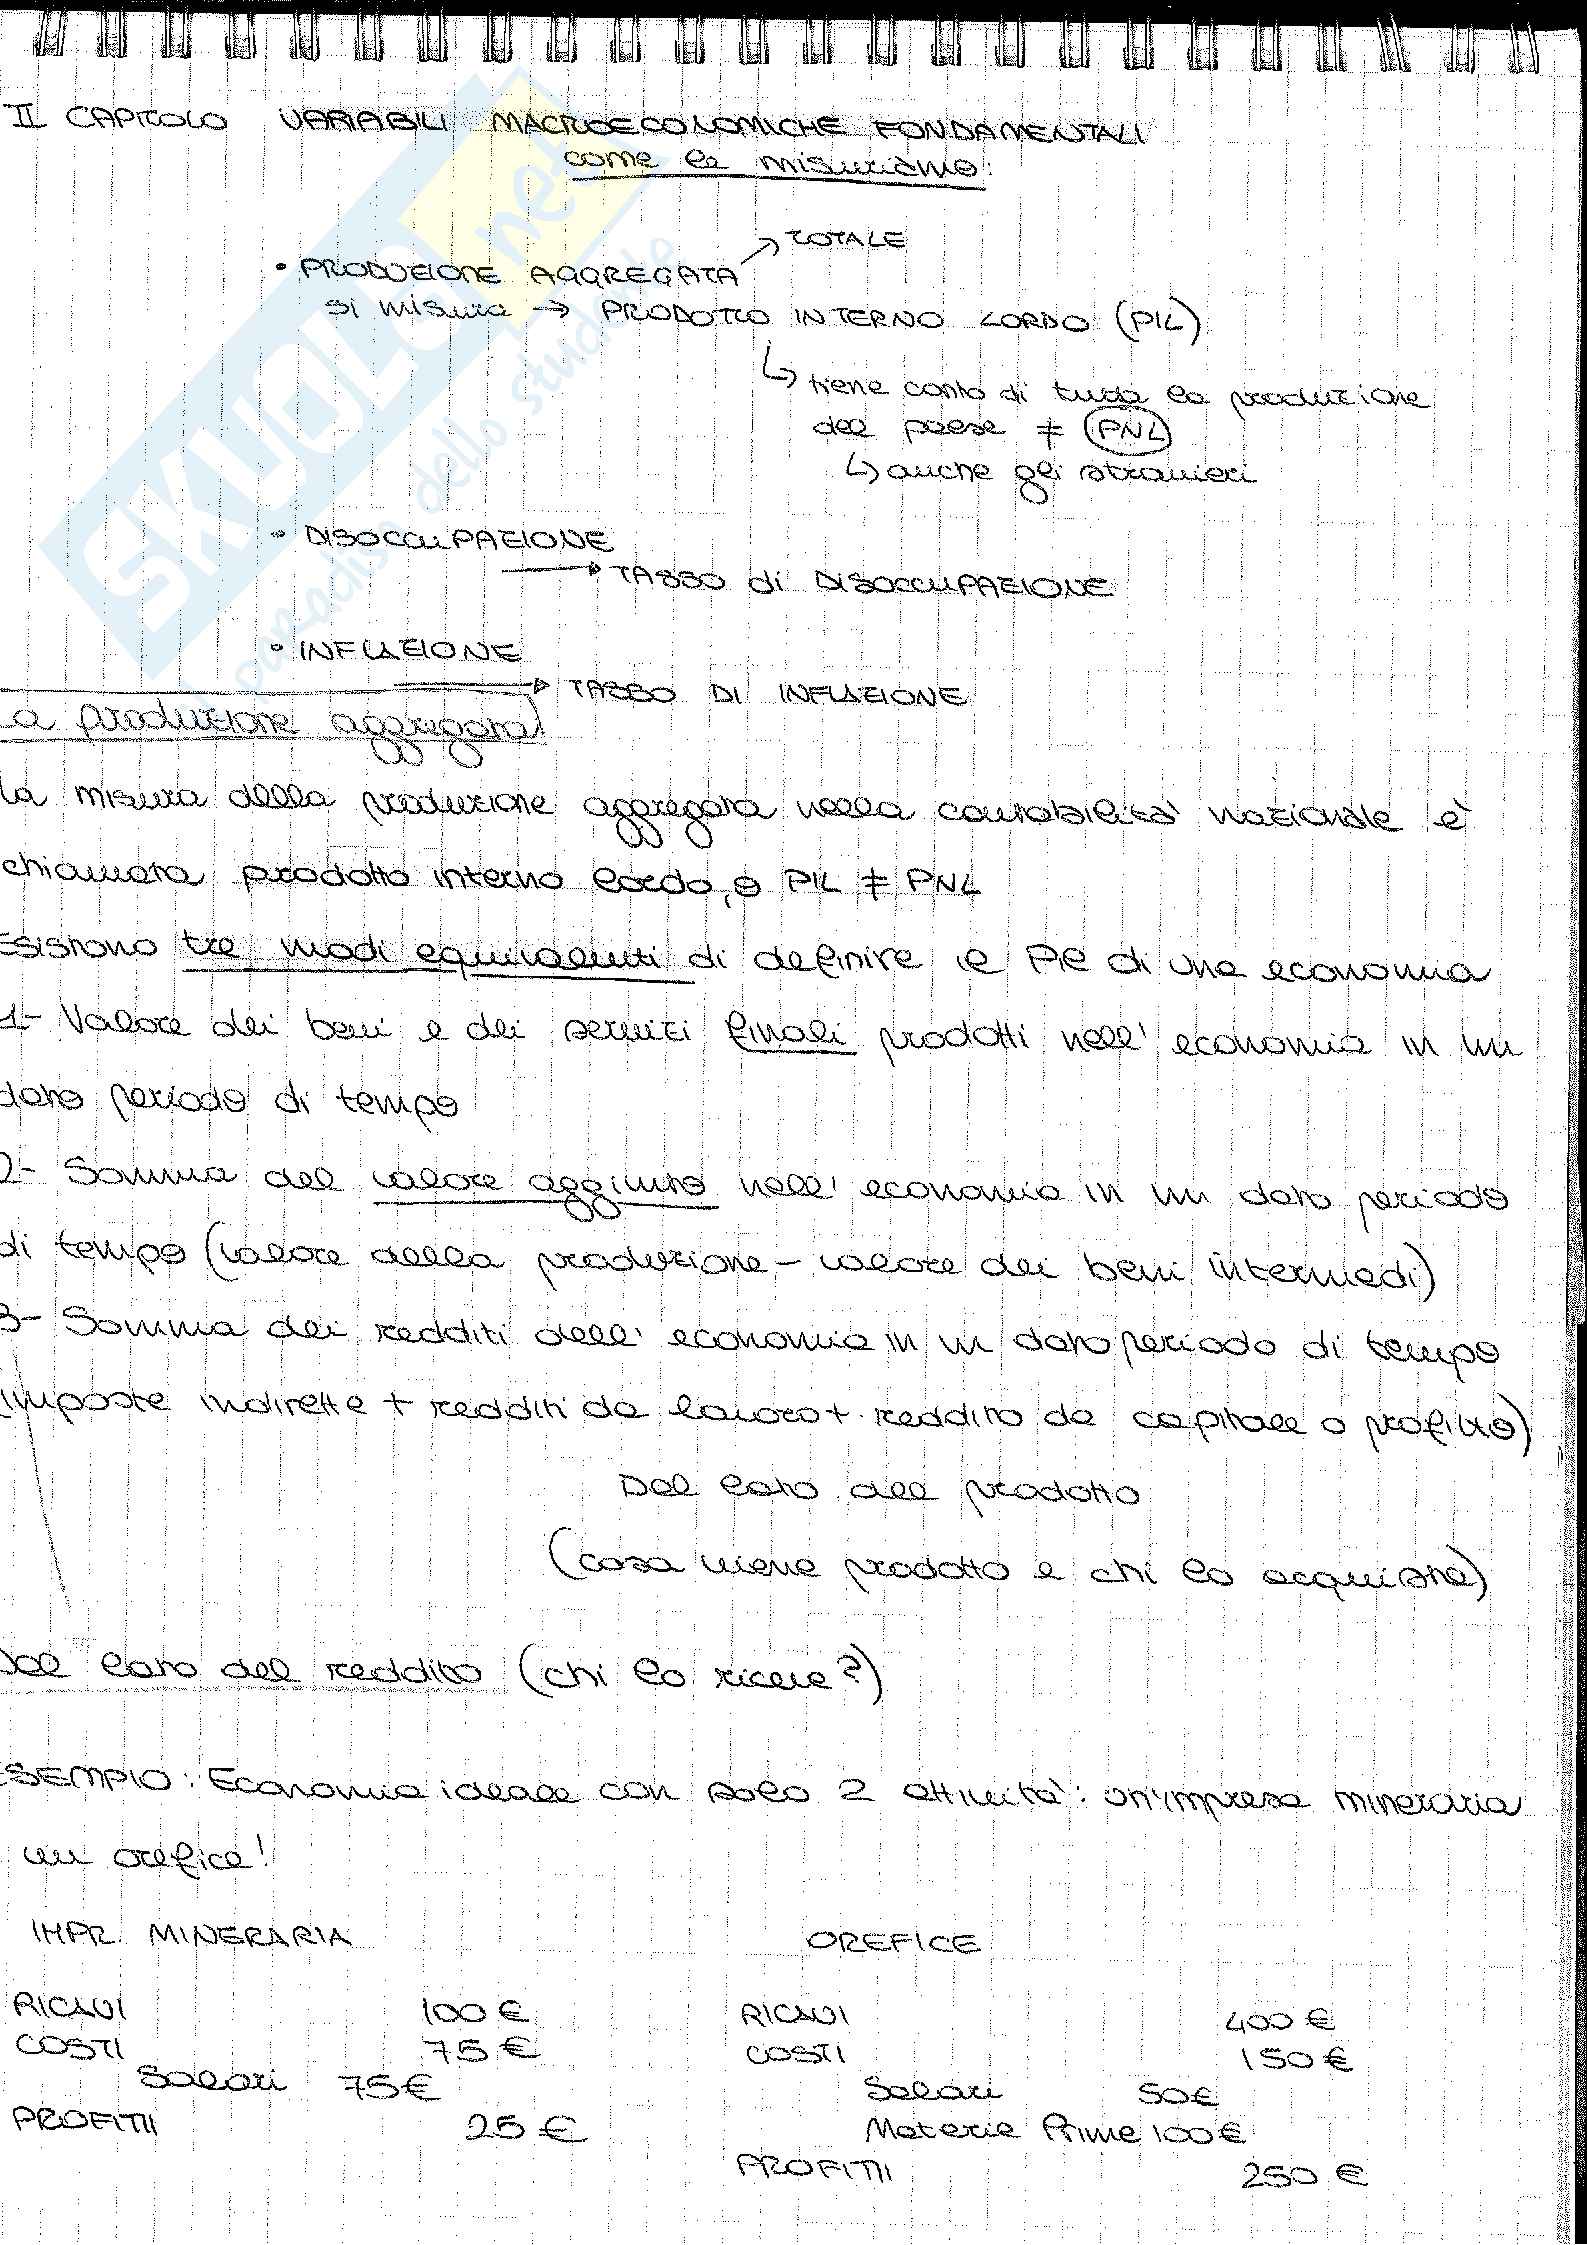 II CAPITOLO VARIABILI MACROECONOMICHE FONDAMENTALI
come le misuriamo:
TOTALE
• PRODUZIONE AGGREGATA
si misura → PRODOTTO INTERNO LORDO (PIL)
↳ tiene conto di tutta la produzione
del paese ≠ PNL
↳ anche gli stranieri
• DISOCCUPAZIONE
→ TASSO di DISOCCUPAZIONE
• INFLAZIONE
→ TASSO DI INFLAZIONE
La produzione aggregata
La misura della produzione aggregata nella contabilità nazionale è
chiamata prodotto interno lordo, o PIL ≠ PNL
Esistono tre modi equivalenti di definire il Pil di una economia
1- Valore dei beni e dei servizi finali prodotti nell'economia in un
dato periodo di tempo
2- Somma del valore aggiunto nell'economia in un dato periodo
di tempo (valore della produzione - valore dei beni intermedi)
3- Somma dei redditi dell'economia in un dato periodo di tempo
(imposte indirette + redditi da lavoro + reddito da capitale o profitto)
Dal lato del prodotto
(cosa viene prodotto e chi lo acquista)
Dal lato del reddito (chi lo riceve?)
ESEMPIO: Economia ideale con solo 2 attività: un'impresa mineraria
un orefice!
IMPR. MINERARIA OREFICE
RICAVI 100 € RICAVI 400 €
COSTI 75 € COSTI 150 €
Salari 75€ Salari 50€
PROFITTI 25 € Materie Prime 100€
PROFITTI 250 €
SKUOLA.net
paradiso dello studente